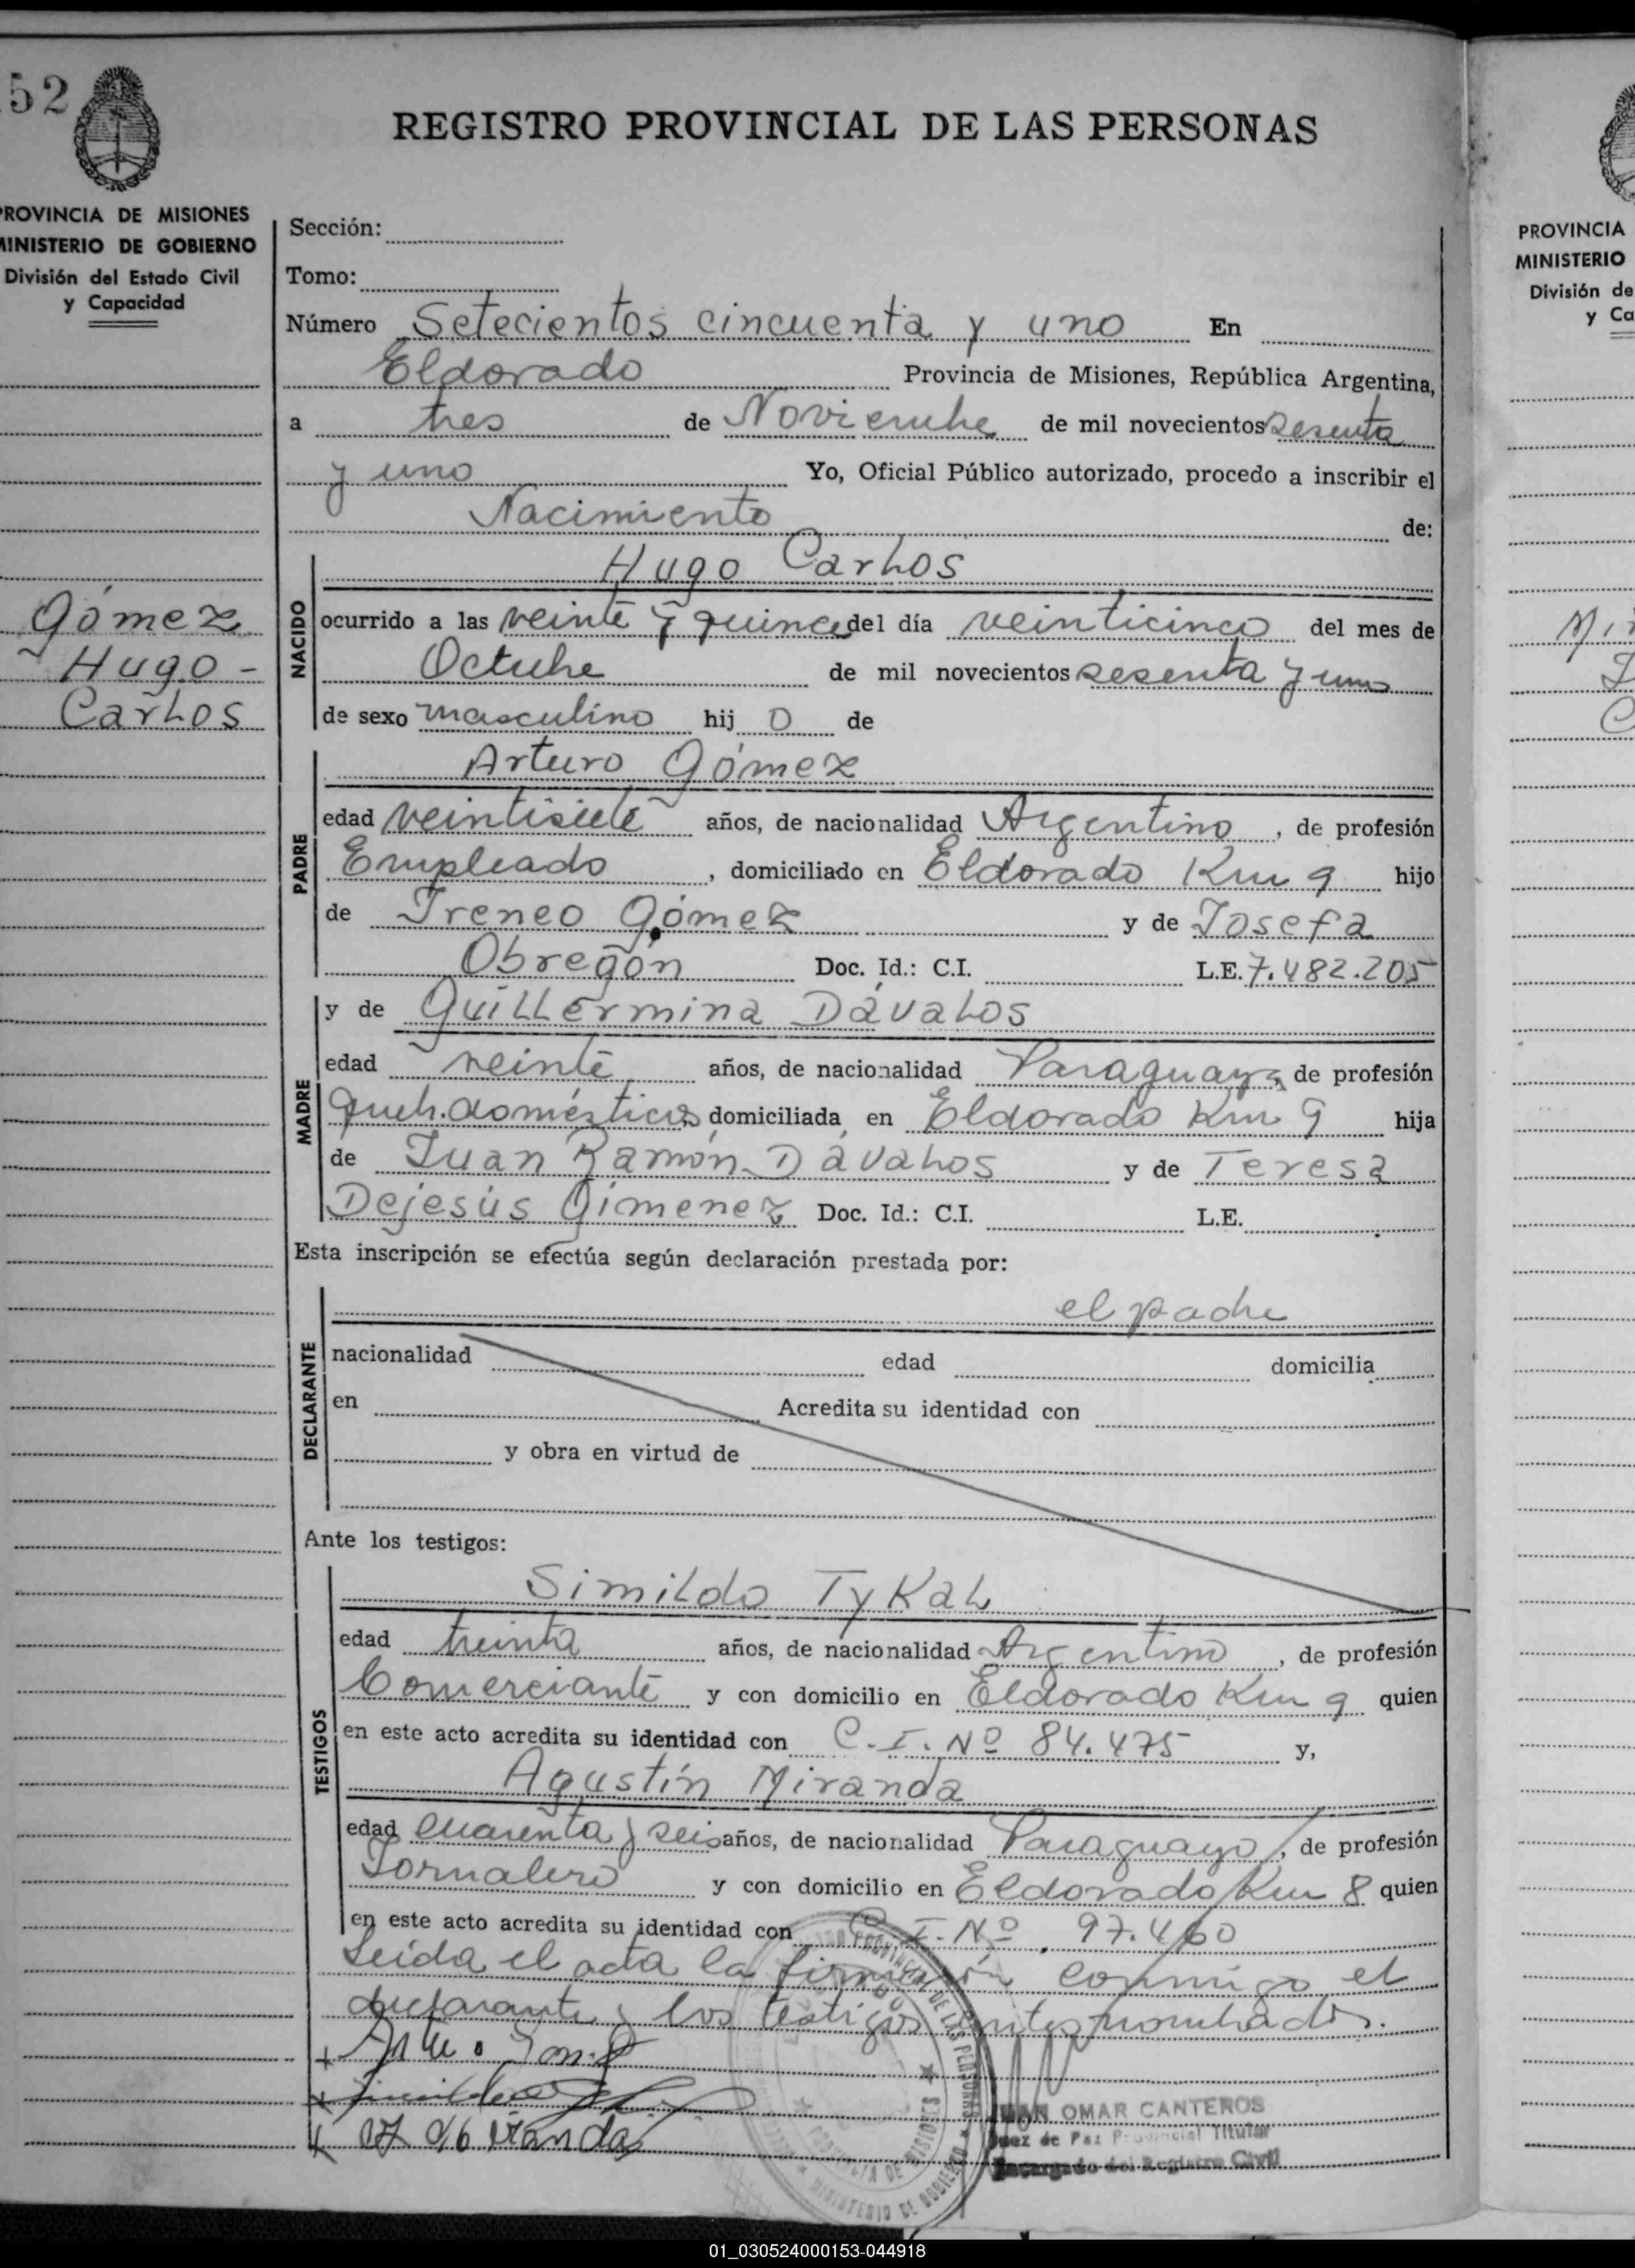 52
REGISTRO PROVINCIAL DE LAS PERSONAS
PROVINCIA DE MISIONES
MINISTERIO DE GOBIERNO
División del Estado Civil
y Capacidad
Sección:
Tomo:
Número Setecientos cincuenta y uno En
Eldorado Provincia de Misiones, República Argentina,
a tres de Noviembre de mil novecientos sesenta
y uno Yo, Oficial Público autorizado, procedo a inscribir el
Nacimiento de:
Gómez
Hugo -
Carlos
NACIDO
Hugo Carlos
ocurrido a las veinte y quince del día veinticinco del mes de
Octubre de mil novecientos sesenta y uno
de sexo masculino hij o de
PADRE
Arturo Gómez
edad veintisiete años, de nacionalidad Argentino, de profesión
Empleado, domiciliado en Eldorado Km 9 hijo
de Ireneo Gómez y de Josefa
Obregón Doc. Id.: C.I. L.E. 7.482.205
MADRE
y de Guillermina Dávalos
edad veinte años, de nacionalidad Paraguaya, de profesión
queh. domésticos domiciliada en Eldorado Km 9 hija
de Juan Ramón Dávalos y de Teresa
Dejesús Gimenez Doc. Id.: C.I. L.E.
Esta inscripción se efectúa según declaración prestada por:
DECLARANTE
el padre
nacionalidad edad domicilia
en Acredita su identidad con
y obra en virtud de
Ante los testigos:
TESTIGOS
Simildo Tykal
edad treinta años, de nacionalidad Argentino, de profesión
Comerciante y con domicilio en Eldorado Km 9 quien
en este acto acredita su identidad con C.I. Nº 84.475 y,
Agustín Miranda
edad cuarenta y seis años, de nacionalidad Paraguayo, de profesión
Jornalero y con domicilio en Eldorado Km 8 quien
en este acto acredita su identidad con C.I. Nº 97.460
Leída el acta la firmarón conmigo el
declarante y los testigos antes nombrados.
JUAN OMAR CANTEROS
Juez de Paz Provincial Titular
Encargado del Registro Civil
PROVINCIA
MINISTERIO
División de
y Ca
01_030524000153-044918